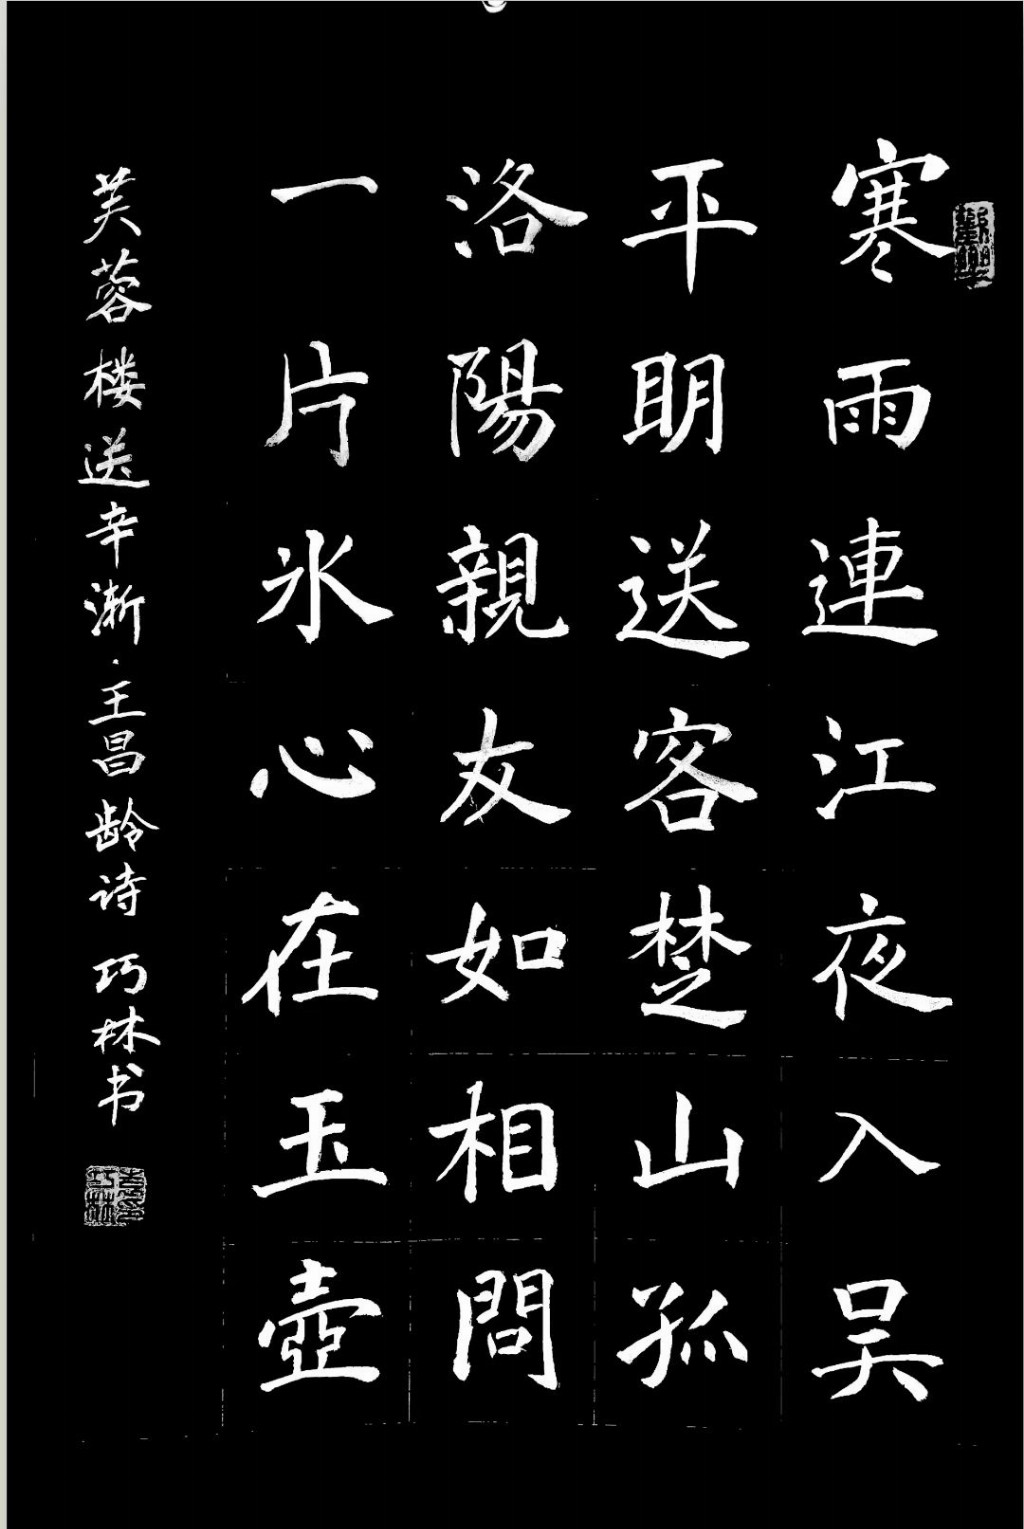 寒雨連江夜入吴
平明送客楚山孤
洛陽親友如相問
一片氷心在玉壺
芙蓉楼送辛渐·王昌龄诗 巧林书